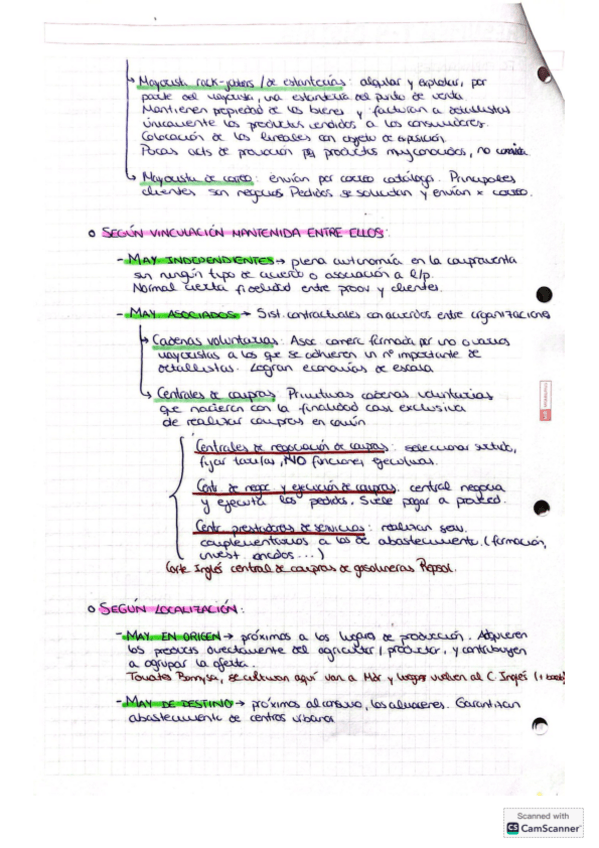 Mayorista rack-jobbers / de estanterías: alquilar y explotar, por
parte del mayorista, una estantería del punto de venta.
Mantienen propiedad de los bienes y facturan a detallistas
únicamente los productos vendidos a los consumidores.
Colocación de los lineales con objeto de exposición.
Pocas acts de promoción productos muy conocidos, no
Mayorista de correo: envían por correo catálogo. Principales
clientes son negocios Pedidos se solicitan y envían x correo.
o SEGÚN VINCULACIÓN MANTENIDA ENTRE ELLOS:
- MAY. INDEPENDIENTES → plena autonomía en la compraventa
sin ningún tipo de acuerdo o asociación a
Normal cierta fidelidad entre provs y clientes.
- MAY. ASOCIADOS → Sist. contractuales con acuerdos entre organizaciones
Cadenas voluntarias: Asoc. comerc. formada por uno o varios
mayoristas a los que se adhieren un nº importante de
detallistas. Logran economías de escala
Centrales de compras: Primitivas cadenas voluntarias
que nacieron con la finalidad casi exclusiva
de realizar compras en común
Centrales de negociación de compras: seleccionar surtido,
fijar tarifas, NO funciones ejecutivas.
Centr. de negoc. y ejecución de compras. central negocia
y ejecuta los pedidos. Suele pagar a proveed.
Centr. prestadoras de servicios: realizan serv.
complementarios a los de abastecimiento. (formación,
invest. mcados...)
Corte Inglés central de compras de gasolineras Repsol.
o SEGÚN LOCALIZACIÓN:
- MAY. EN ORIGEN → próximos a los lugares de producción. Adquieren
los products directamente del agricultor / productor, y contribuyen
a agrupar la oferta.
Tomates se cultivan aquí van a Mdr y luego vuelven al C. Inglés
- MAY DE DESTINO → próximos al consumo, los almacenes. Garantizan
abastecimiento de centros urbanos
Scanned with
CS CamScanner